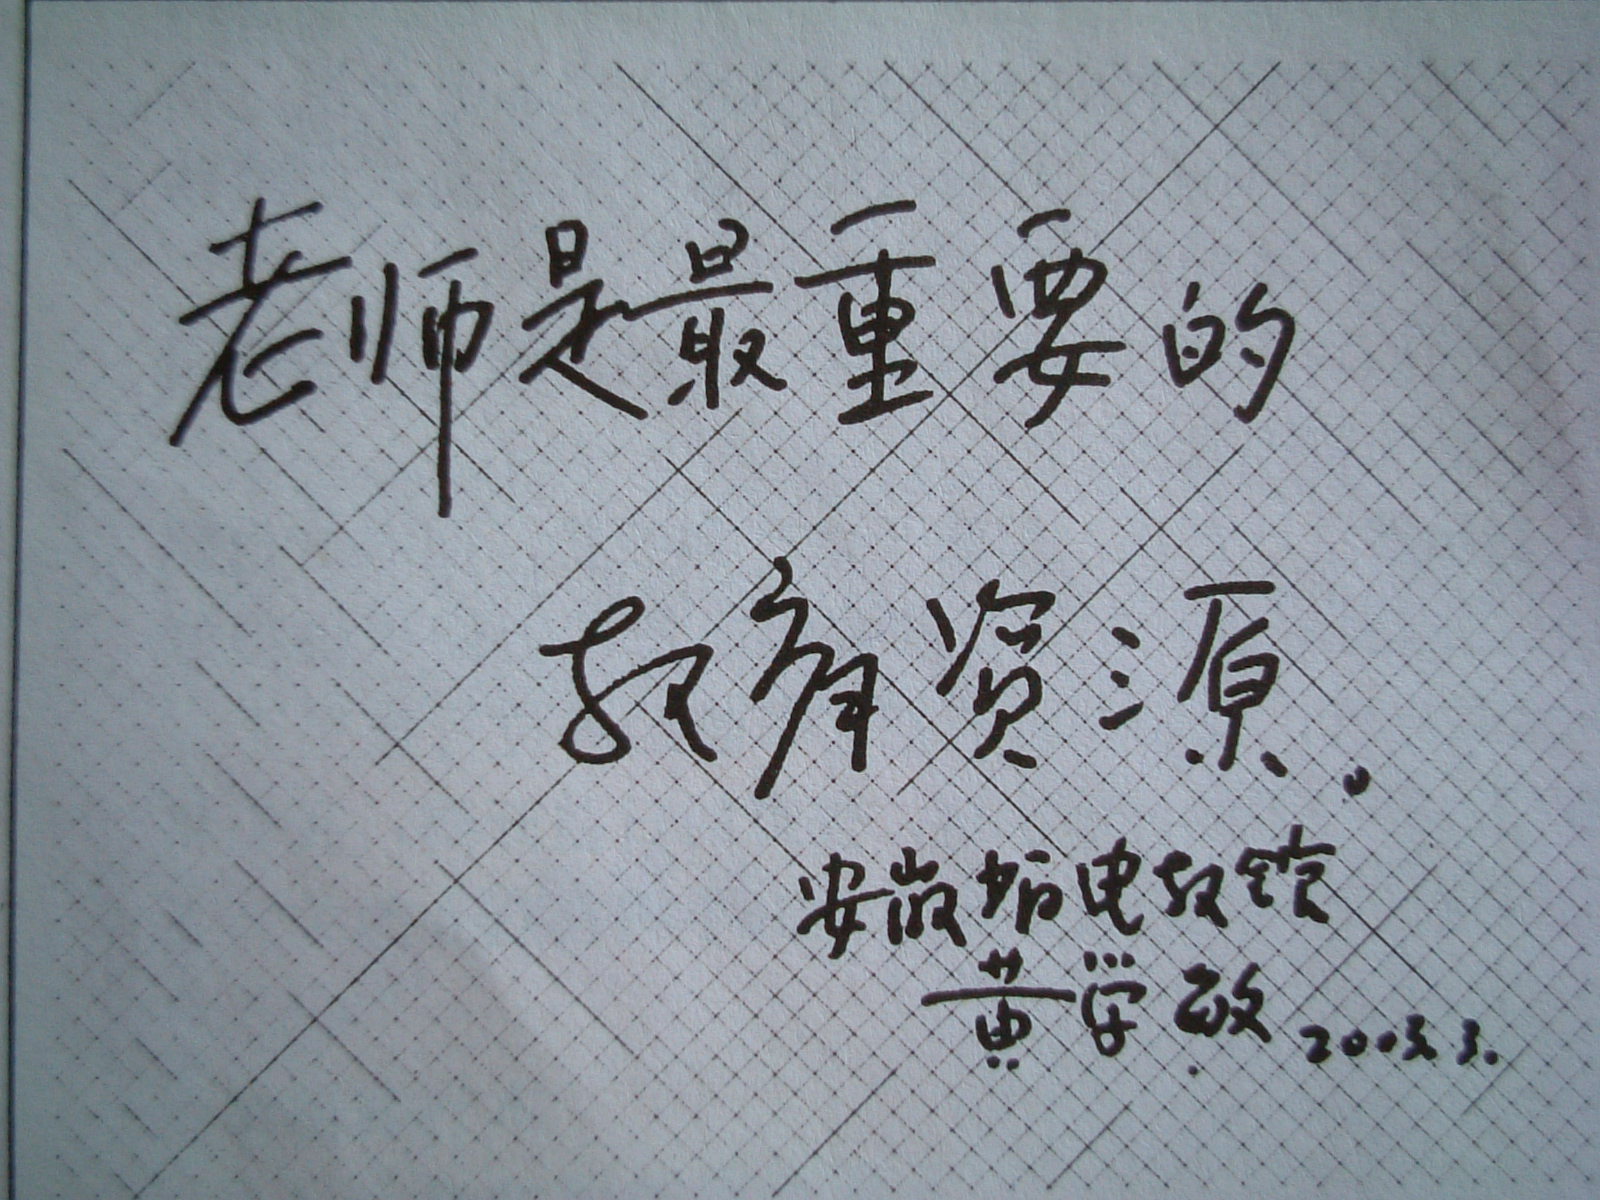 老师是最重要的
教育资源。
安徽省电教馆
黄学敏 2003.3.